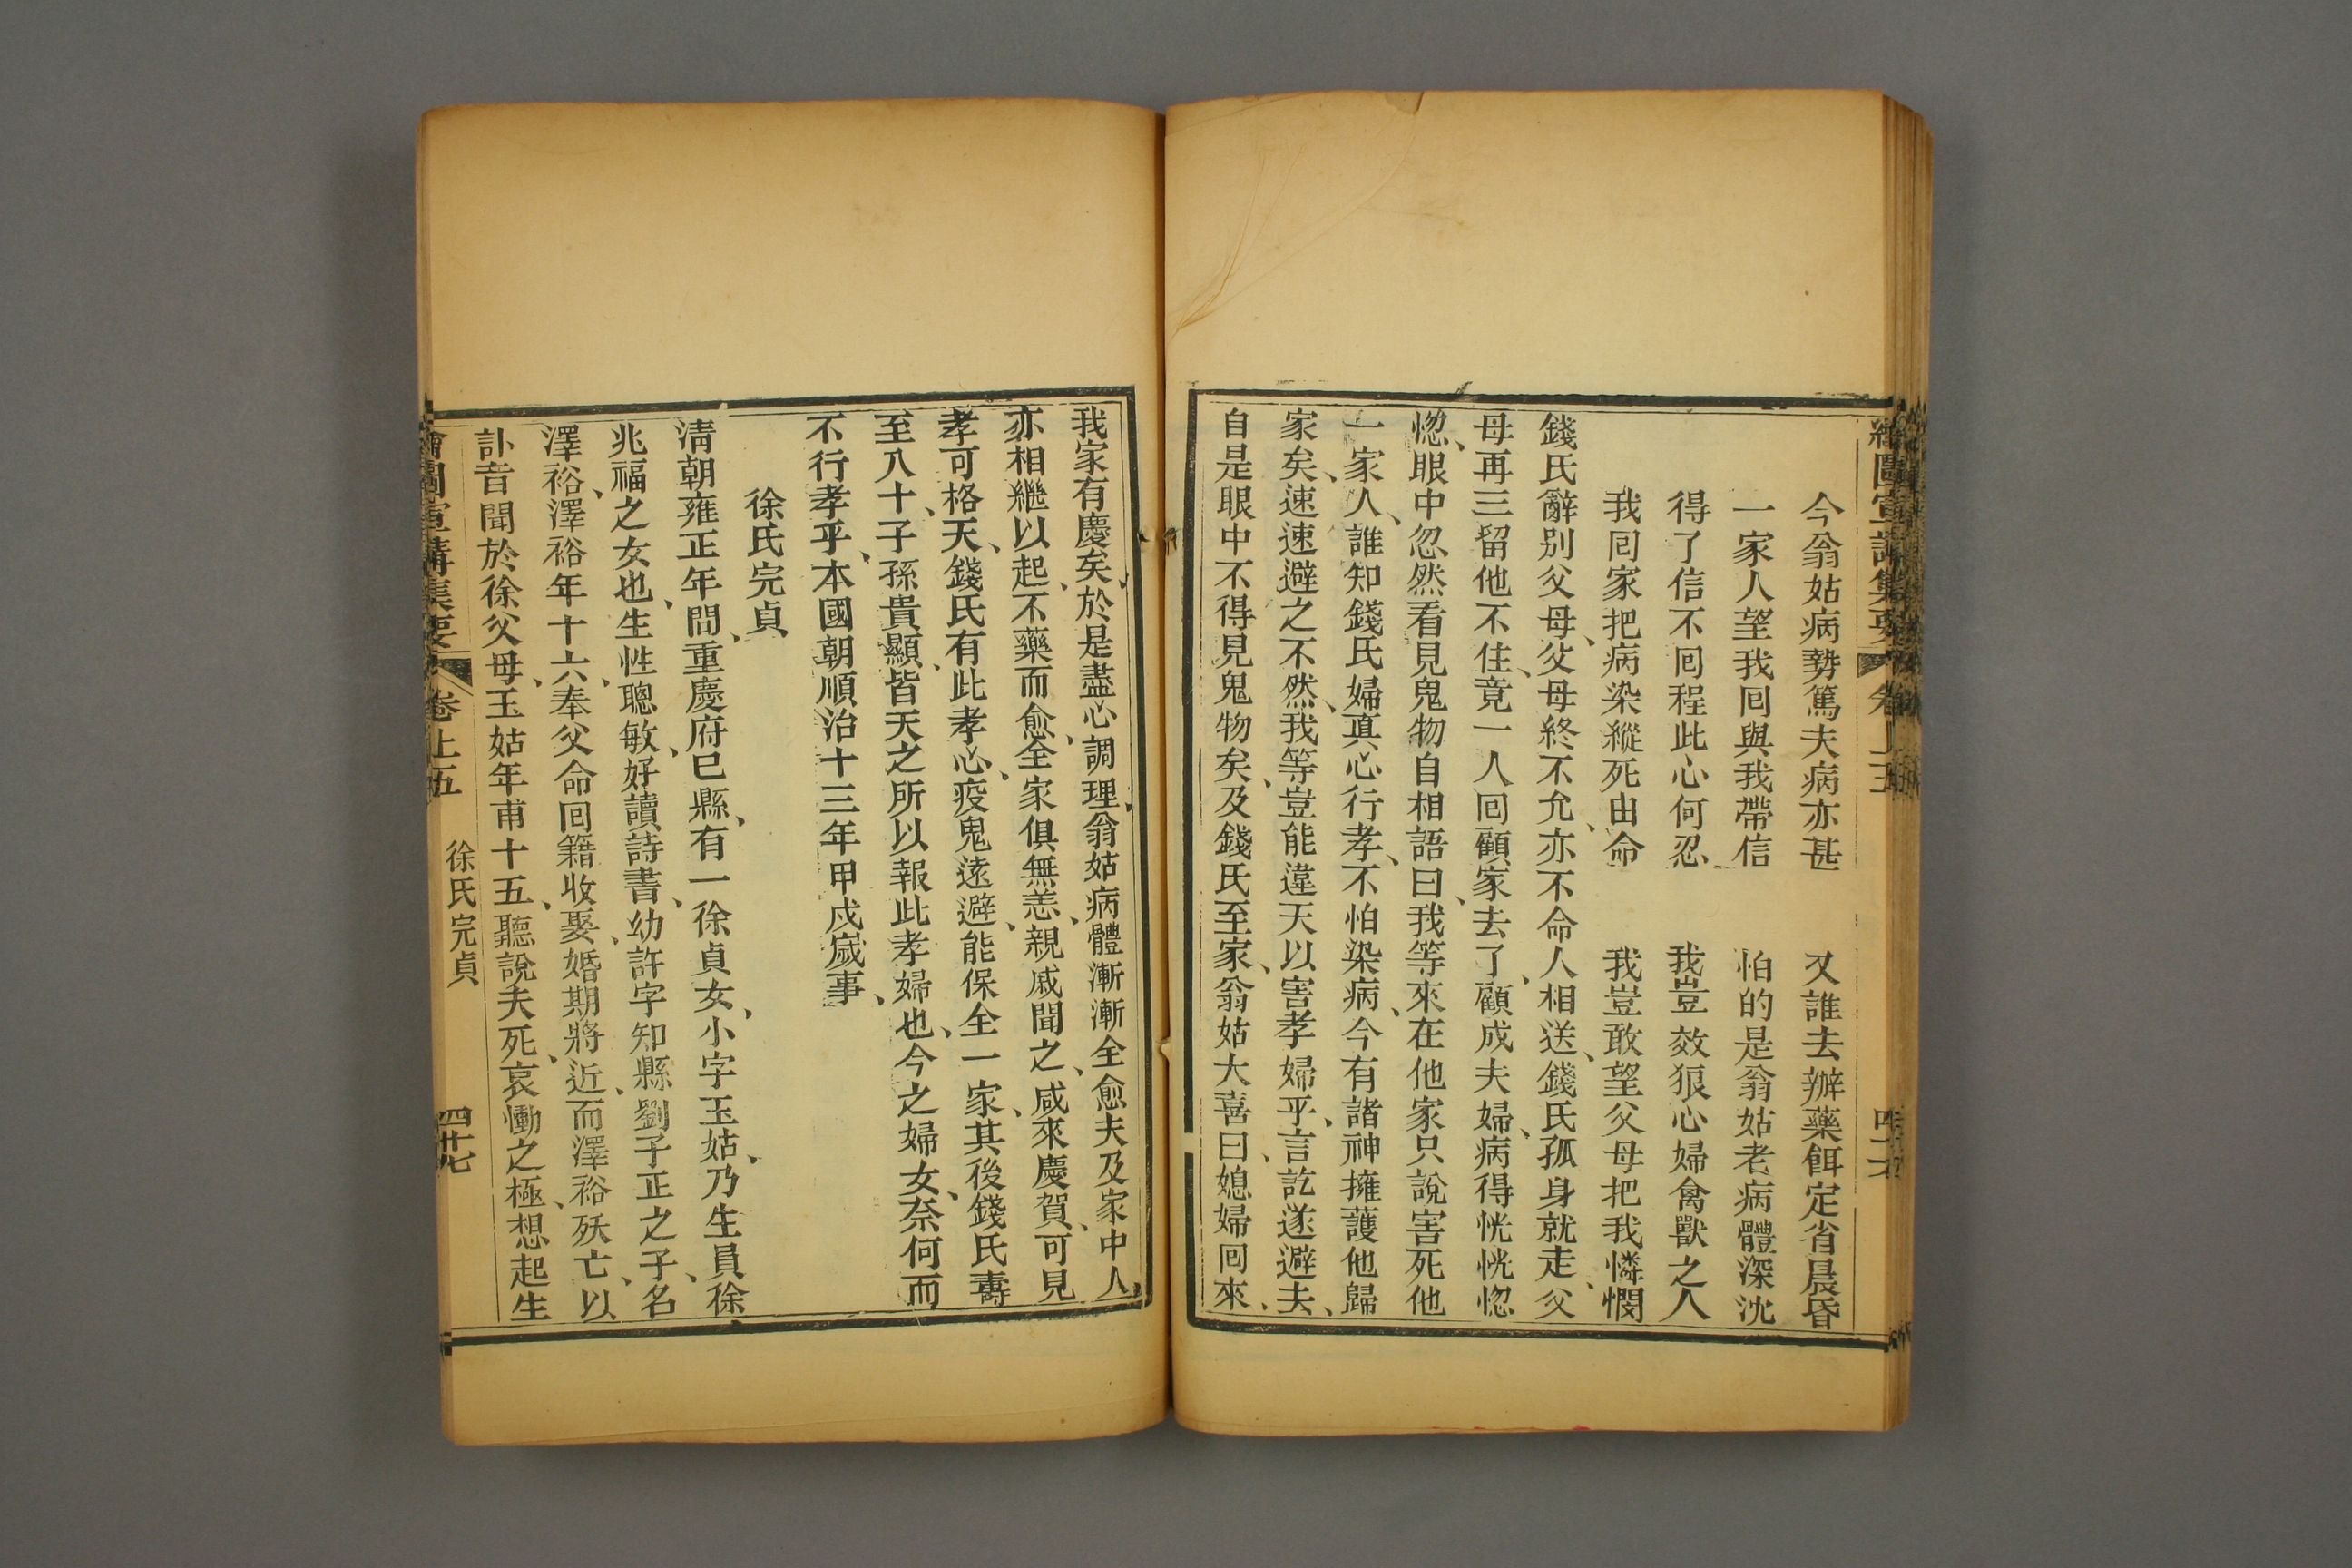 今翁姑病勢篤夫病亦甚　又誰去辦藥餌定省晨昏
一家人望我囘與我帶信　怕的是翁姑老病體深沈
得了信不囘程此心何忍　我豈效狠心婦禽獸之人
我囘家把病染縱死由命　我豈敢望父母把我憐憫
錢氏辭别父母、父母終不允、亦不命人相送、錢氏孤身就走、父
母再三留他不住、竟一人囘顧家去了、顧成夫婦、病得恍恍惚
惚、眼中忽然看見鬼物自相語曰、我等來在他家只說害死他
一家人、誰知錢氏婦眞心行孝、不怕染病、今有諸神擁護他歸
家矣、速速避之不然、我等豈能違天以害孝婦乎、言訖遂避夫、
自是眼中不得見鬼物矣、及錢氏至家、翁姑大喜曰、媳婦囘來、
我家有慶矣、於是盡心調理、翁姑病體漸漸全愈夫及家中人、
亦相繼以起、不藥而愈、全家俱無恙、親戚聞之、咸來慶賀、可見
孝可格天、錢氏有此孝心、疫鬼遠避、能保全一家、其後錢氏壽
至八十、子孫貴顯、皆天之所以報此孝婦也、今之婦女、奈何而
不行孝乎、本國朝順治十三年甲戍嵗事、
徐氏完貞
淸朝雍正年間、重慶府巴縣、有一徐貞女、小字玉姑、乃生員徐、
兆福之女也、生性聰敏、好讀詩書、幼許字知縣劉子正之子、名
澤裕、澤裕年十六、奉父命囘籍收娶、婚期將近、而澤裕殀亡、以
訃音聞於徐父母、玉姑年甫十五、聽說夫死、哀慟之極、想起生
繪圖宣講集要　卷上五　徐氏完貞　四廿七